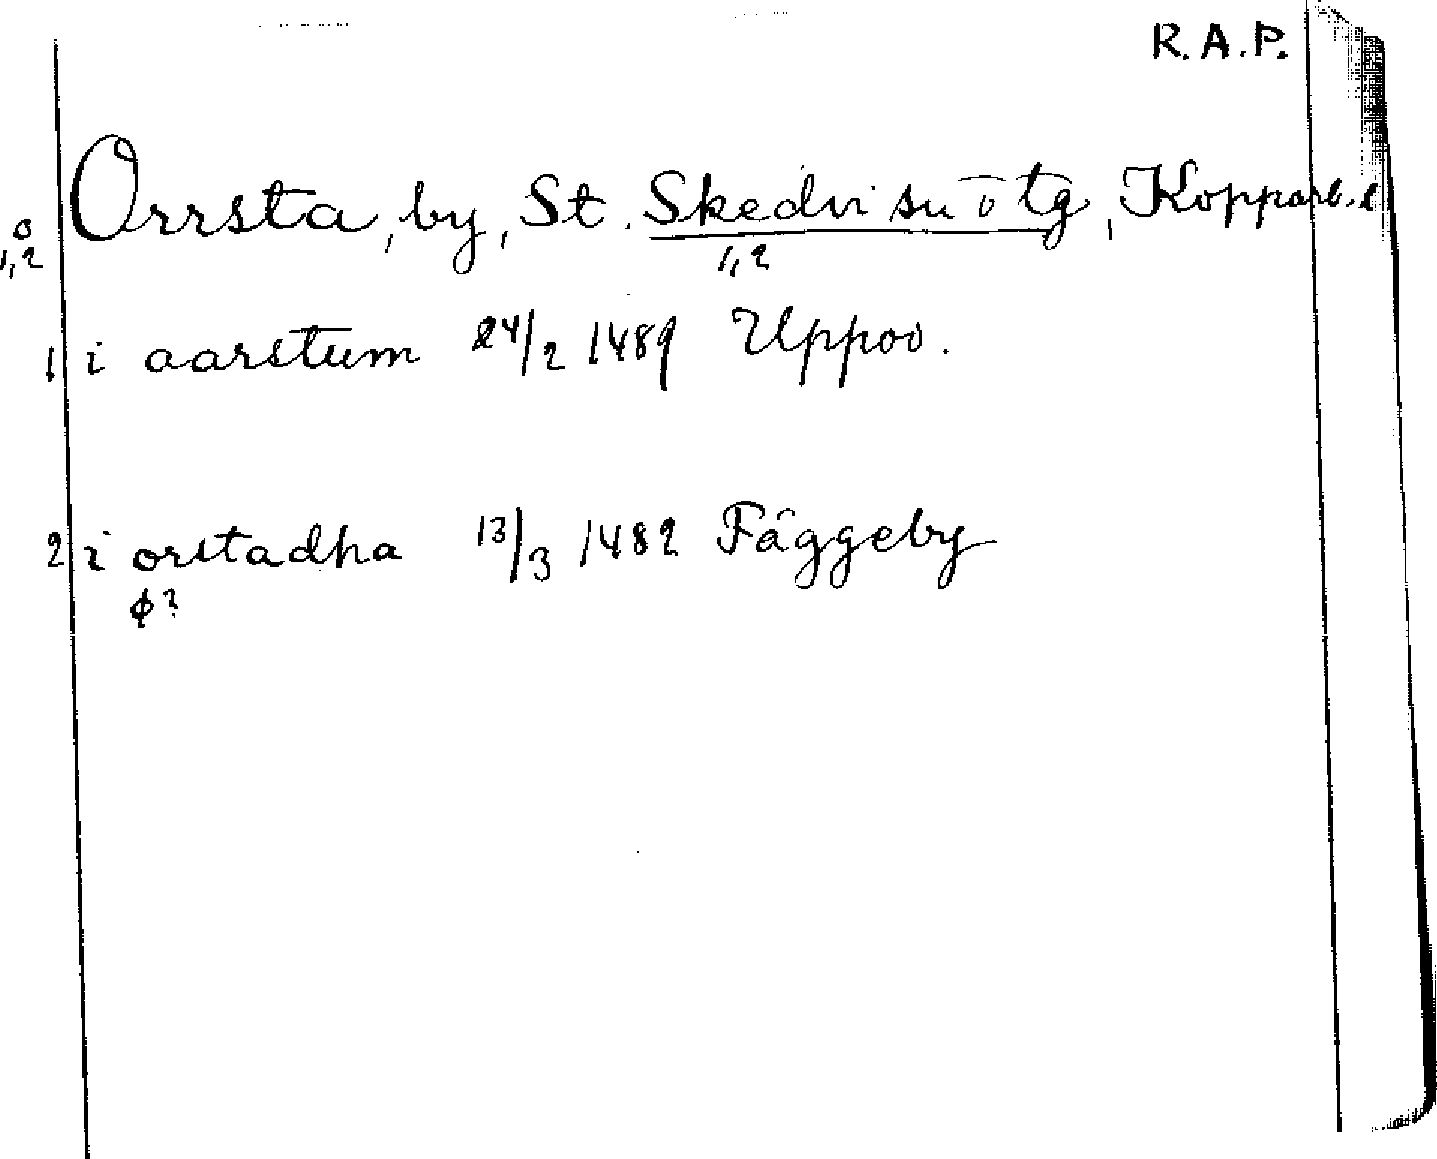 R.A.P.
Orrsta, by, St. Skedvi su o tg, Kopparb. l
o
1,2 1,2
1 i aarstum 24/2 1489 Uppoo.
2 i orstadha 13/3 1482 Fäggeby
ø?